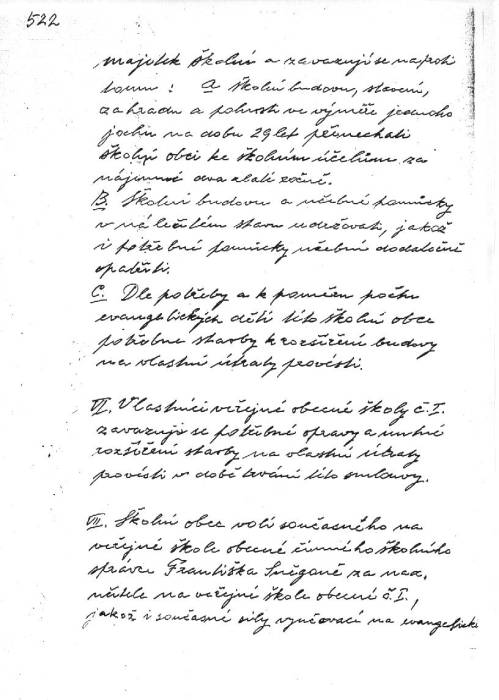 522
majetek školní a zavazují se naproti
tomu: A školní budovu, stavení,
zahradu a polnosti ve výměře jednoho
jochu na dobu 29 let přenechati
školní obci ke školním účelům za
nájemné dva zlaté ročně.
B. Školní budovu a učebné pomůcky
v náležitém stavu udržovati, jakož
i potřebné pomůcky učební dodatečně
opatřiti.
C. Dle potřeby a k poměru počtu
evangelických dětí této školní obce
potřebné stavby k rozšíření budovy
na vlastní útraty provésti.
VI. Vlastníci veřejné obecné školy č. I.
zavazují se potřebné opravy a nutné
rozšíření stavby na vlastní útraty
provésti v době trvání této smlouvy.
VII. Školní obec volí současného na
veřejné škole obecné činného školního
správce Františka za nad.
učitele na veřejné škole obecné č. I.,
jakož i současné síly vyučovací na evangelické